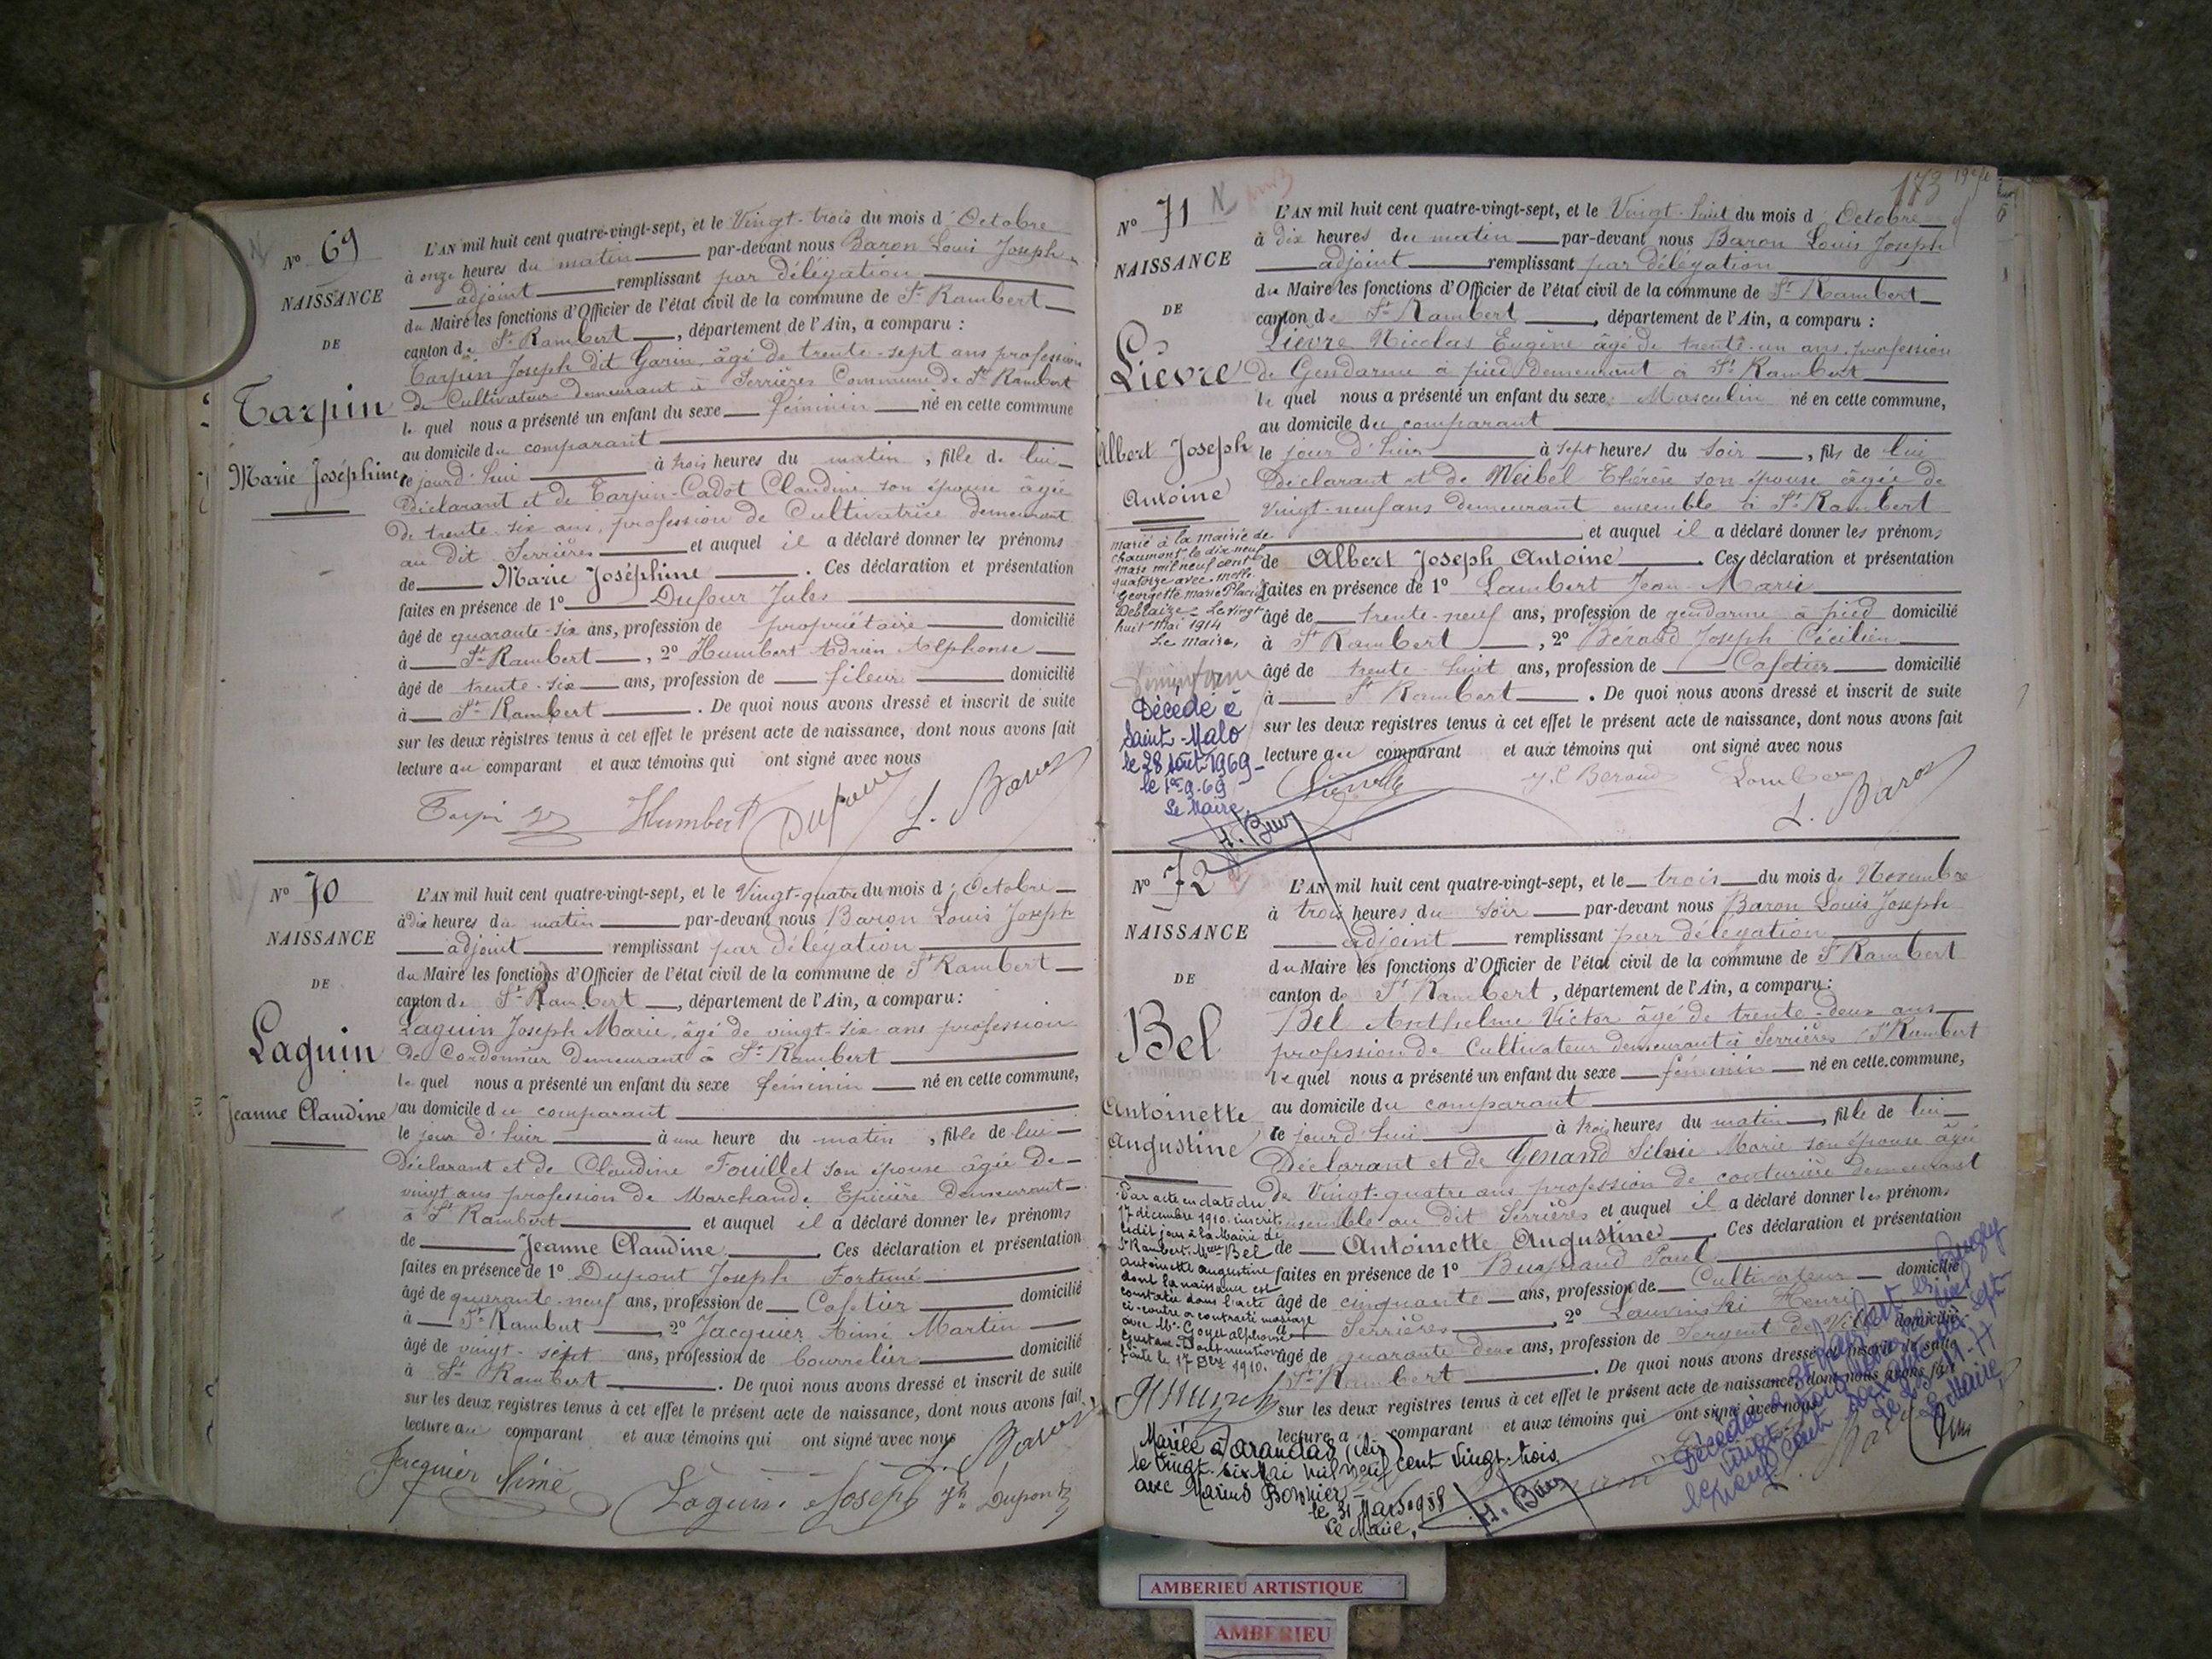 N° 69
NAISSANCE
DE
Tarpin
Marie Joséphine
L'AN mil huit cent quatre-vingt-sept, et le Vingt-trois du mois d'Octobre
à onze heures du matin par-devant nous Baron Louis Joseph
adjoint remplissant par délégation
du Maire les fonctions d'Officier de l'état civil de la commune de St Rambert
canton de St Rambert, département de l'Ain, a comparu :
Tarpin Joseph dit Garin âgé de trente-sept ans profession
de Cultivateur demeurant à Serrières Commune de St Rambert
le quel nous a présenté un enfant du sexe féminin né en cette commune
au domicile du comparant
le jourd'hui à trois heures du matin, fille de lui
Déclarant et de Tarpin-Cadot Claudine son épouse âgée
de trente-six ans, profession de Cultivatrice demeurant
au dit Serrières et auquel il a déclaré donner les prénoms
de Marie Joséphine. Ces déclaration et présentation
faites en présence de 1° Dufour Jules
âgé de quarante-six ans, profession de propriétaire domicilié
à St Rambert, 2° Humbert Adrien Alphonse
âgé de trente-six ans, profession de fileur domicilié
à St Rambert. De quoi nous avons dressé et inscrit de suite
sur les deux registres tenus à cet effet le présent acte de naissance, dont nous avons fait
lecture au comparant et aux témoins qui ont signé avec nous
Humbert Dufour L. Baron
N° 70
NAISSANCE
DE
Laguin
Jeanne Claudine
L'AN mil huit cent quatre-vingt-sept, et le Vingt-quatre du mois d'Octobre
à dix heures du matin par-devant nous Baron Louis Joseph
adjoint remplissant par délégation
du Maire les fonctions d'Officier de l'état civil de la commune de St Rambert
canton de St Rambert, département de l'Ain, a comparu :
Laguin Joseph Marie, âgé de vingt-six ans profession
de Cordonnier demeurant à St Rambert
le quel nous a présenté un enfant du sexe féminin né en cette commune,
au domicile du comparant
le jour d'hier à une heure du matin, fille de lui
Déclarant et de Claudine Fouillet son épouse âgée de
vingt ans profession de Marchande Epicière demeurant
à St Rambert et auquel il a déclaré donner les prénoms
de Jeanne Claudine. Ces déclaration et présentation
faites en présence de 1° Dupont Joseph Fortuné
âgé de quarante-neuf ans, profession de Cafetier domicilié
à St Rambert, 2° Jacquier Aimé Martin
âgé de vingt-sept ans, profession de bourrelier domicilié
à St Rambert. De quoi nous avons dressé et inscrit de suite
sur les deux registres tenus à cet effet le présent acte de naissance, dont nous avons fait
lecture au comparant et aux témoins qui ont signé avec nous
L. Baron
Jacquier Aimé Laguin Joseph Dupont
173
N° 71
NAISSANCE
DE
Lièvre
Albert Joseph
Antoine
marié à la mairie de
chaumont le dix neuf
mars mil neuf cent
quatorze avec Melle
Georgette Marie
Le vingt
huit Mai 1914
Le maire,
Décédé à
Saint-Malo
le 28 août 1969
le 1er 9.69
Le Maire,
L'AN mil huit cent quatre-vingt-sept, et le Vingt-huit du mois d'Octobre
à dix heures du matin par-devant nous Baron Louis Joseph
adjoint remplissant par délégation
du Maire les fonctions d'Officier de l'état civil de la commune de St Rambert
canton de St Rambert, département de l'Ain, a comparu :
Lièvre Nicolas Eugène âgé de trente-un ans, profession
de Gendarme à pied demeurant à St Rambert
le quel nous a présenté un enfant du sexe Masculin né en cette commune,
au domicile du comparant
le jour d'hier à sept heures du soir, fils de lui
Déclarant et de Weibel Thérèse son épouse âgée de
vingt-neuf ans demeurant ensemble à St Rambert
et auquel il a déclaré donner les prénoms
de Albert Joseph Antoine. Ces déclaration et présentation
faites en présence de 1° Lambert Jean Marie
âgé de trente-neuf ans, profession de gendarme à pied domicilié
à St Rambert, 2° Béraud Joseph Cécilien
âgé de trente-huit ans, profession de Cafetier domicilié
à St Rambert. De quoi nous avons dressé et inscrit de suite
sur les deux registres tenus à cet effet le présent acte de naissance, dont nous avons fait
lecture au comparant et aux témoins qui ont signé avec nous
Beraud L. Baron
N° 72
NAISSANCE
DE
Bel
Antoinette
Augustine
Par acte en date du
17 décembre 1910 inscrit
ledit jour à la Mairie de
St Rambert Melle Bel
Antoinette Augustine
dont la naissance est
constatée dans l'acte
ci-contre a contracté mariage
avec Mr Goyet Alphonse
Gustave. Dont mention
faite le 17 Xbre 1910.
L'AN mil huit cent quatre-vingt-sept, et le trois du mois de Novembre
à trois heures du soir par-devant nous Baron Louis Joseph
adjoint remplissant par délégation
du Maire les fonctions d'Officier de l'état civil de la commune de St Rambert
canton de St Rambert, département de l'Ain, a comparu :
Bel Anthelme Victor âgé de trente-deux ans
profession de Cultivateur demeurant à Serrières St Rambert
le quel nous a présenté un enfant du sexe féminin né en cette commune,
au domicile du comparant
le jourd'hui à trois heures du matin, fille de lui
Déclarant et de Genand Silvie Marie son épouse âgée
de Vingt-quatre ans profession de couturière demeurant
ensemble au dit Serrières et auquel il a déclaré donner les prénoms
de Antoinette Augustine. Ces déclaration et présentation
faites en présence de 1° Bugnand Paul
âgé de cinquante ans, profession de Cultivateur domicilié
à Serrières, 2° Henri
âgé de quarante deux ans, profession de Sergent de Ville domicilié
à St Rambert. De quoi nous avons dressé et inscrit de suite
sur les deux registres tenus à cet effet le présent acte de naissance, dont nous avons fait
lecture au comparant et aux témoins qui ont signé avec nous
Mariée à Arandas (Ain)
le vingt-six Mai mil neuf cent vingt-trois
avec Marius Bonnier
le 31 Mars 1958
Le Maire,
Le Maire
AMBERIEU ARTISTIQUE
AMBERIEU